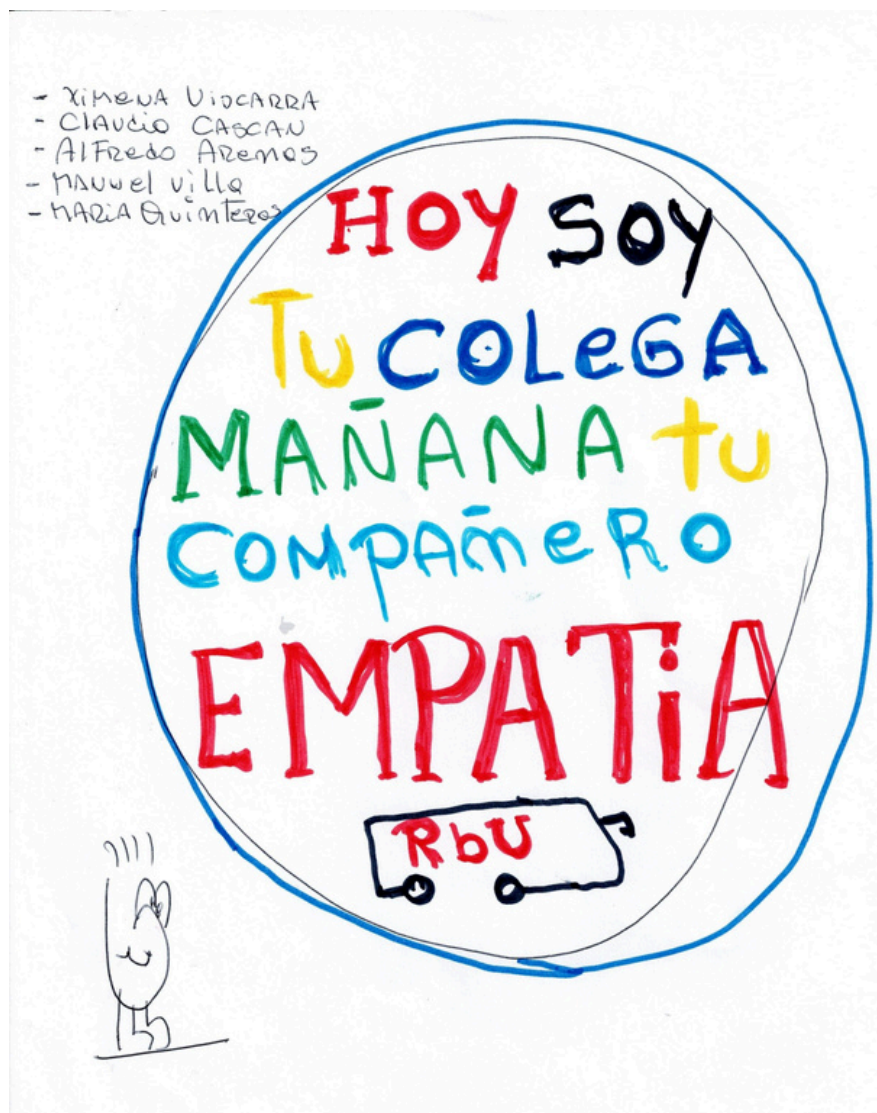 - XiMeNA ViDCARRA
- ClAUdio CASCAN
- AlFRedo AReNAS
- MANUel Villa
- MARiA QuiNTeRos
HOY SOY
Tu COLeGA
MAÑANA tu
COMPAÑeRO
EMPATiA
RbU